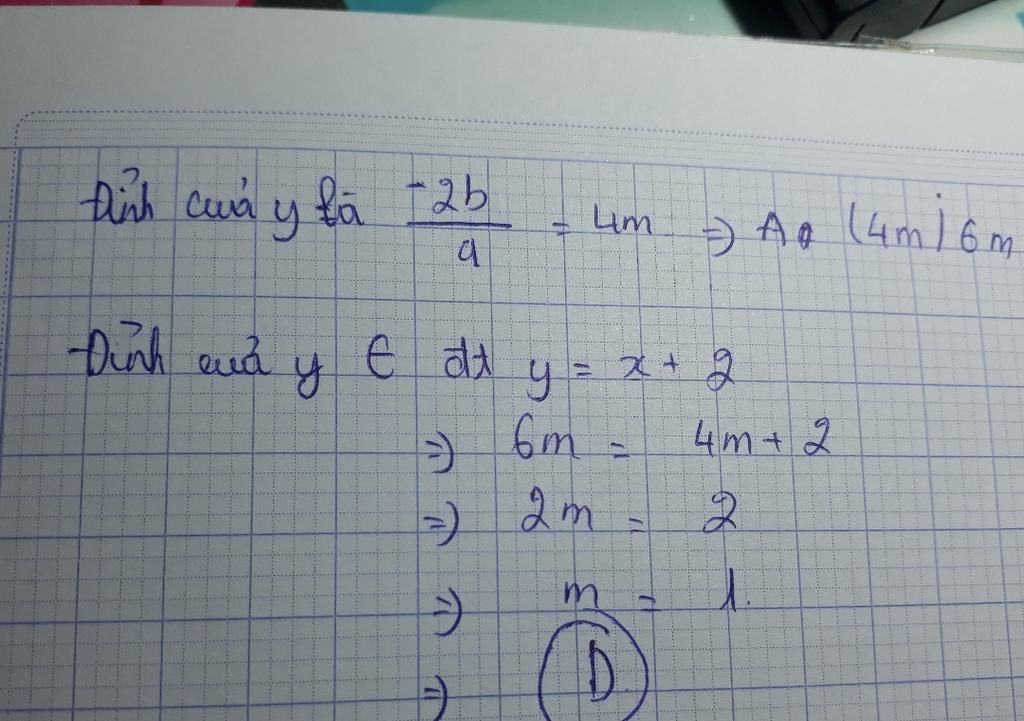 Đỉnh của y là \frac{-2b}{a} = 4m => A (4m; 6m
Đỉnh của y ∈ đt y = x + 2
=> 6m = 4m + 2
=> 2m = 2
=> m = 1.
=> D